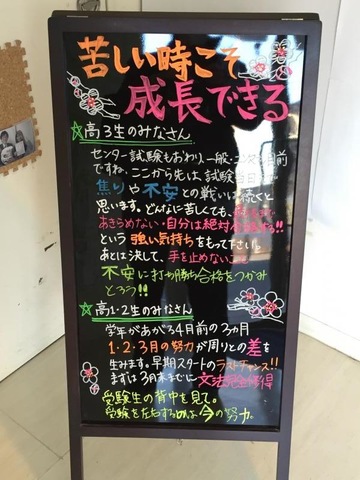 苦しい時こそ
成長できる
☆高3生のみなさん
センター試験もおわり、一般・二次目前
ですね。ここから先は、試験当日まで
焦りや不安との戦いは続くと
思います。どんなに苦しくても、
あきらめない・自分は絶対!!
という強い気持ちをもって下さい。
あとは決して、手を止めないこと
不安に打ち勝ち合格をつかみ
とろう!!
☆高1・2生のみなさん
学年があがる4月前の3ヵ月
1・2・3月の努力が周りとの差を
生みます。早期スタートのラストチャンス!!
まずは3月末までに文法完全修得
受験生の背中を見て。
受験を左右するのは今の努力。